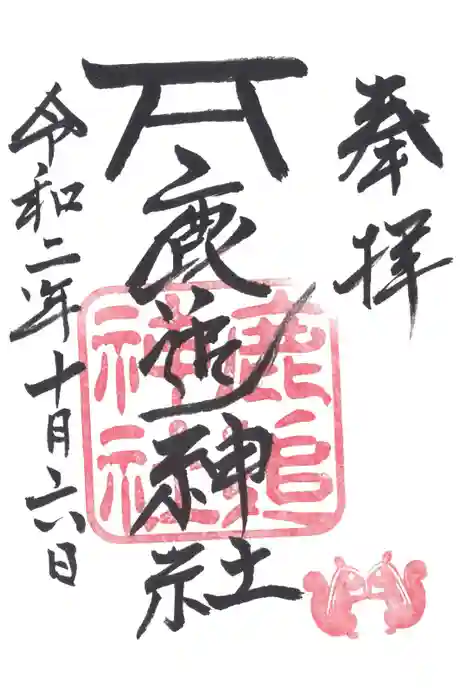 奉拝
鹿追神社
鹿追神社
令和二年十月六日